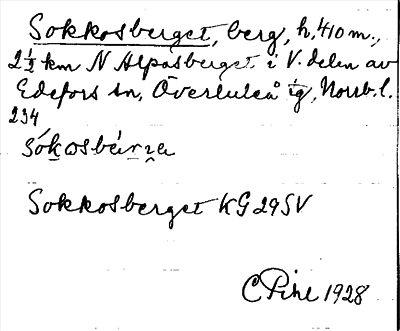 Sokkosberget, berg, h. 410 m.,
2½ km N Alpåsberget i V. delen av
Edefors sn, Överluleå tg, Norrb. l.
234
Sokkosberget KG 29 SV
C Pihl 1928